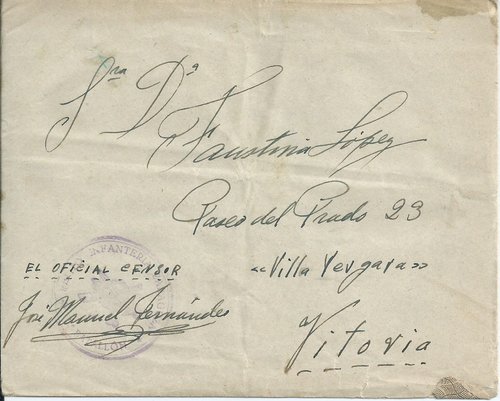 Sra Dª
Faustina López
Paseo del Prado 23
«Villa Vergara»
Vitoria
EL OFICIAL CENSOR
José Manuel Fernández
INFANTERIA